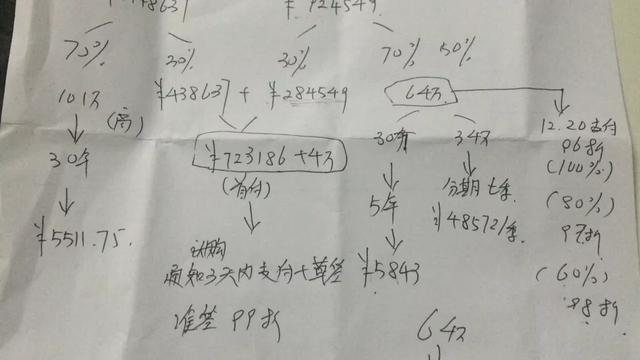 ¥924549
70% 30% 30% 70% 50%
101万 ¥438637 + ¥284549 64万
(商)
30万 34万 12.20支付
96折
(100%)
30年 ¥723186+4万
(首付) 5年 分期七季 (80%)
97折
¥5511.75 ¥48572/季
认购
须知3天内支付+草签 ¥5843 (60%)
98折
准签 99折
64万